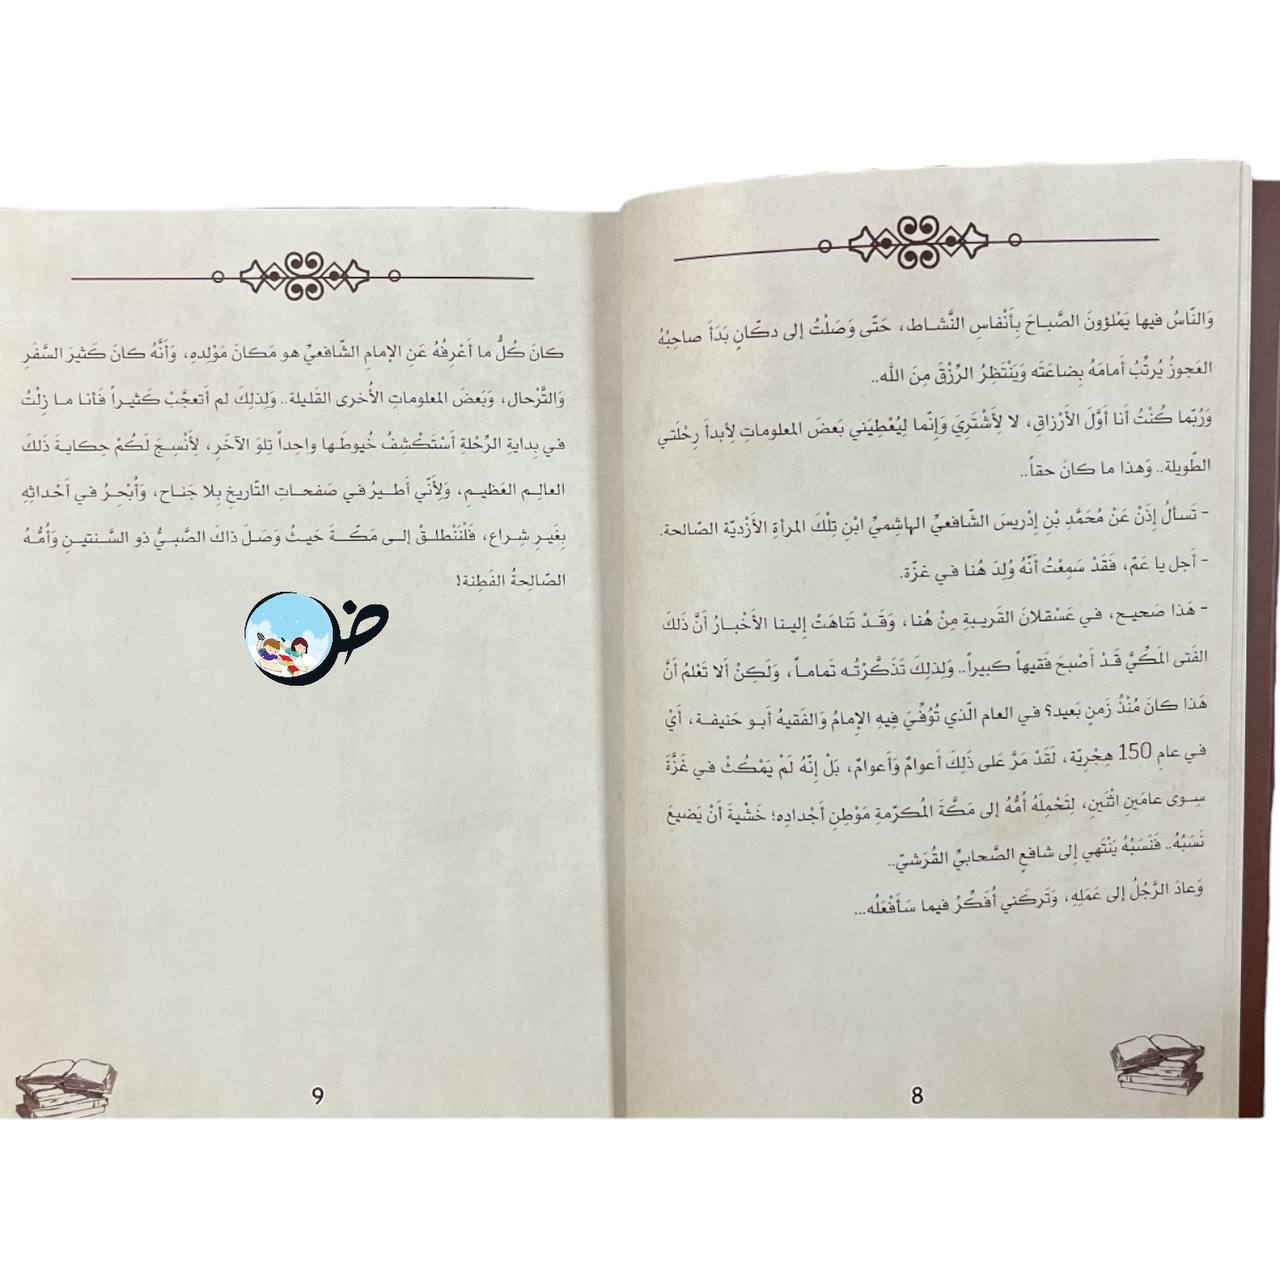 وَالنّاسُ فيها يَمْلؤونَ الصَّباحَ بِأَنْفاسِ النَّشـاط، حَتّى وَصَلْتُ إلى دكّانٍ بَدَأَ صاحِبُهُ
العَجوزُ يُرتِّبُ أمامَهُ بِضاعَتَه وَيَنْتَظِرُ الرِّزْقَ مِنَ الله..
وَرُبّما كُنْتُ أنا أوَّلَ الأَرْزاقِ، لا لِأَشْتَرِيَ وَإنّما لِيُعْطِيَني بَعضَ المعلوماتِ لِأبدأَ رِحْلَتي
الطّويلة.. وَهذا ما كانَ حقاً..
- تَسألُ إذَنْ عَنْ مُحَمَّدِ بْنِ إدْريسَ الشّافعيِّ الهاشِميِّ ابْنِ تِلْكَ المرأةِ الأَزْديّة الصّالحة.
- أَجل يا عَمّ، فَقَدْ سَمِعْتُ أنّهُ وُلِدَ هُنا في غزّة.
- هَذا صَحيح، في عَسْقلانَ القَريبةِ مِنْ هُنا، وَقَـدْ تَناهَتْ إلينا الأَخْبـارُ أنَّ ذَلكَ
الفَتى المَكِّيَّ قَدْ أصْبحَ فَقيهاً كبيراً.. وَلِذلِكَ تَذَكَّرْتُـه تَماماً، وَلَكِنْ ألا تَعْلمُ أنَّ
هَذا كانَ مُنْذُ زَمنٍ بَعيد؟ في العام الّذي تُوُفِّيَ فِيهِ الإمامُ وَالفَقيهُ أبـو حَنيفـة، أَيْ
في عامِ 150 هِجْريّة، لَقَدْ مَرَّ عَلى ذَلِكَ أعوامٌ وَأعوامٌ، بَلْ إنّهُ لَمْ يَمْكُثْ في غَزَّةَ
سِـوى عامَينِ اثْنَينِ، لِتَحْمِلَهُ أُمُّهُ إلى مَكَّةَ المُكرّمةِ مَوْطِنِ أَجْدادِه؛ خَشْيةَ أَنْ يَضيعَ
نَسَبُهُ.. فَنَسَبُهُ يَنْتَهي إلى شافعٍ الصَّحابيِّ القُرَشيّ..
وَعادَ الرَّجُلُ إلى عَمَلِهِ، وَتَركَني أُفَكِّرُ فيما سَأفْعَلُه...
8
كانَ كُلُّ ما أعْرِفُهُ عَنِ الإمامِ الشّافعيِّ هو مَكانَ مَوْلِدِهِ، وَأنَّهُ كانَ كَثيرَ السَّفَرِ
وَالتَّرْحال، وَبَعضَ المعلوماتِ الأُخرى القَليلة.. وَلِذلِكَ لم أتعجَّبْ كَثيـراً فَأنا مـا زِلْتُ
في بِدايةِ الرِّحْلةِ أسْتَكْشِفُ خُيوطَـها واحِـداً تِلوَ الآخَرِ، لِأَنْسِجَ لَكُمْ حِكايـةَ ذَلكَ
العالِـم العَظيـمِ، وَلِأنّي أطيـرُ في صَفحـاتِ التّاريخِ بِلا جَناح، وَأُبْحِـرُ في أحْداثِهِ
بِغَيرِ شِراع، فَلْنَنْطلـقْ إلـى مَكّــةَ حَيـثُ وَصَـلَ ذاكَ الصَّبـيُّ ذو السَّنتيـنِ وَأُمُّـهُ
الصّالِحةُ الفَطِنة!
ض
9